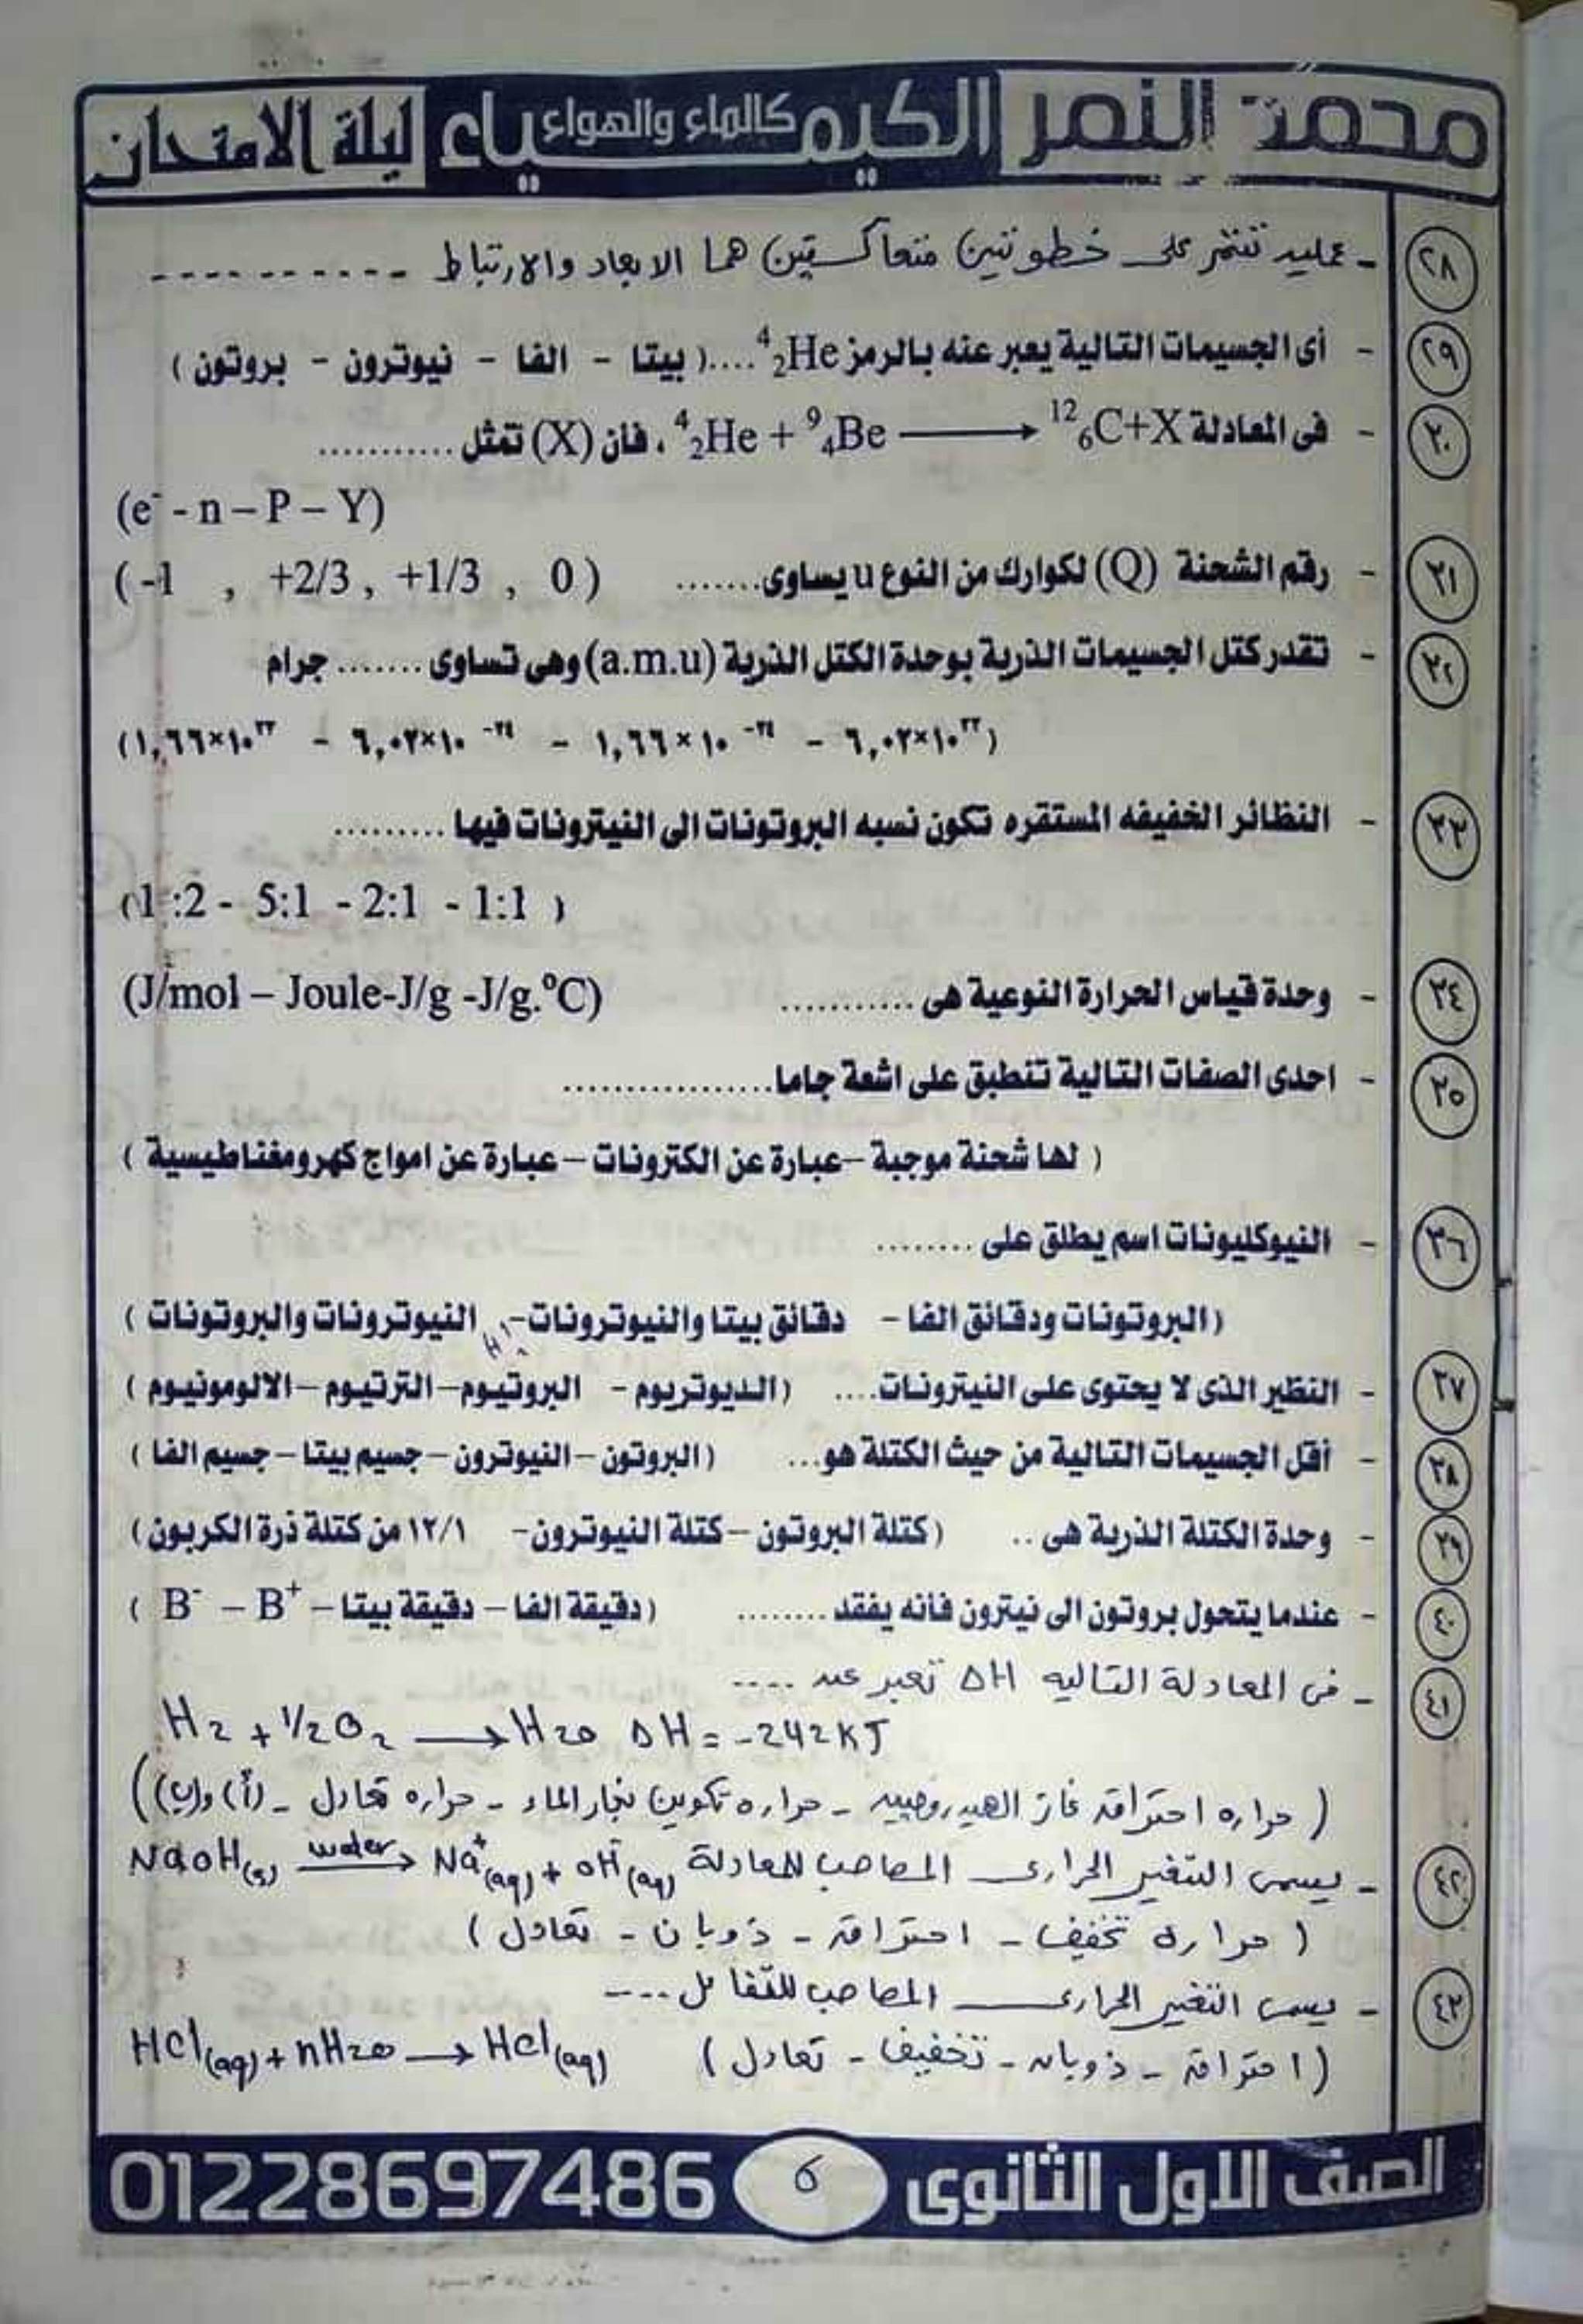 محمد النمر الكيمياء كالماء والهواء ليلة الامتحان
٢٨ - عملية تشتمل على خطوتين متعاكستين هما الابعاد والارتباط ----------
٢٩ - أى الجسيمات التالية يعبر عنه بالرمز ⁴₂He ....( بيتا - الفا - نيوترون - بروتون )
٣٠ - فى المعادلة ⁴₂He + ⁹₄Be ⟶ ¹²₆C+X ، فأن (X) تمثل ............
(e⁻ - n – P – Y)
٣١ - رقم الشحنة (Q) لكوارك من النوع u يساوى....... ( -1 , +2/3 , +1/3 , 0 )
٣٢ - تقدر كتل الجسيمات الذرية بوحدة الكتل الذرية (a.m.u) وهى تساوى ....... جرام
(٦,٠٢×١٠²³ - ١,٦٦×١٠⁻²⁴ - ٦,٠٢×١٠⁻²⁴ - ١,٦٦×١٠²³)
٣٣ - النظائر الخفيفه المستقره تكون نسبه البروتونات الى النيترونات فيها .........
(1:2 - 5:1 - 2:1 - 1:1 )
٣٤ - وحدة قياس الحرارة النوعية هى ........... (J/mol – Joule-J/g -J/g.°C)
٣٥ - احدى الصفات التالية تنطبق على اشعة جاما.................
( لها شحنة موجبة – عبارة عن الكترونات – عبارة عن امواج كهرومغناطيسية )
٣٦ - النيوكليونات اسم يطلق على ........
(البروتونات ودقائق الفا - دقائق بيتا والنيوترونات - النيوترونات والبروتونات )
٣٧ - النظير الذى لا يحتوى على النيترونات.... (الديوتريوم - البروتيوم – الترتيوم – الالومونيوم )
٣٨ - أقل الجسيمات التالية من حيث الكتلة هو... (البروتون – النيوترون – جسيم بيتا – جسيم الفا )
٣٩ - وحدة الكتلة الذرية هى .. (كتلة البروتون – كتلة النيوترون- ١٢/١ من كتلة ذرة الكربون)
٤٠ - عندما يتحول بروتون الى نيترون فأنه يفقد ........ (دقيقة الفا – دقيقة بيتا – B⁺ – B⁻ )
٤١ - فى المعادلة التاليه ΔH تعبر عن ----
H₂ + 1/2 O₂ ⟶ H₂O ΔH = -242 KJ
( حراره احتراق غاز الهيدروجين - حراره تكوين بخار الماء - حراره تعادل - (أ) و(ب))
٤٢ - يسمى التغير الحرارى المصاحب للمعادلة NaOH(s) water⟶ Na⁺(aq) + OH⁻(aq)
( حرارة تخفيف - احتراق - ذوبان - تعادل )
٤٣ - يسمى التغير الحرارى المصاحب للتفاعل ----
HCl(aq) + nH₂O ⟶ HCl(aq) ( احتراق - ذوبان - تخفيف - تعادل )
الصف الاول الثانوى ٥ 01228697486